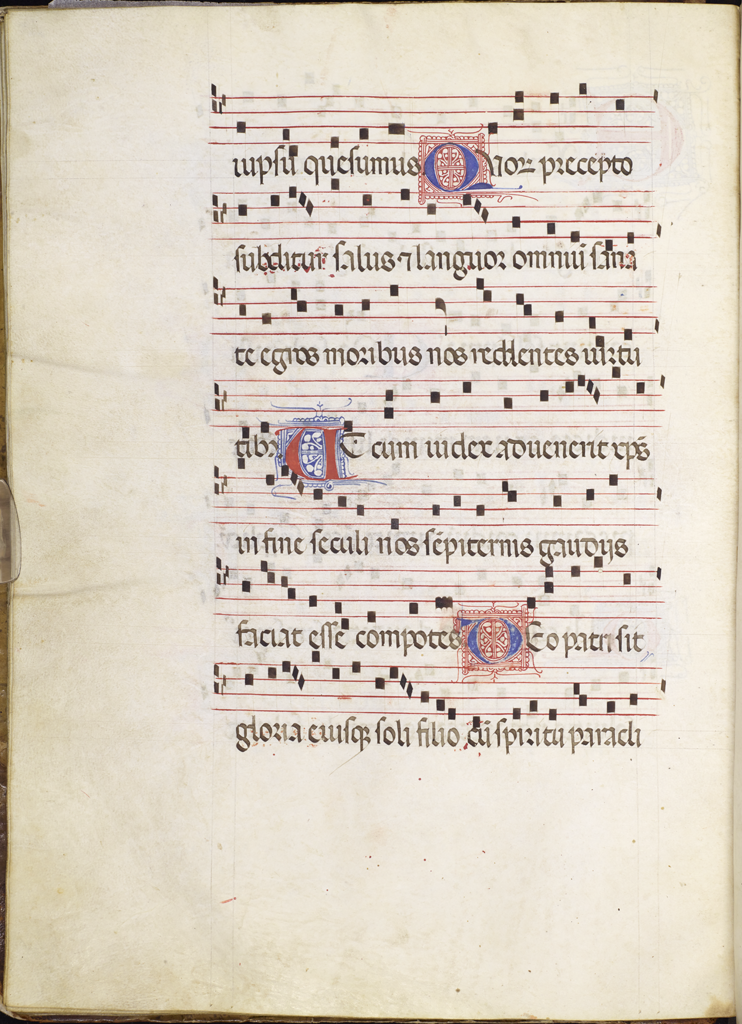 iupsu quesumus Quoꝝ precepto
subditur salus ⁊ languor omniū sana
te egros moribus nos reddentes uirtu
tibꝫ Ut cum iudex aduenerit xp̄s
in fine seculi nos sēpiternis gaudijs
faciat esse compotes Deo patri sit
gloria eiusqꝫ soli filio cū spiritu paracli